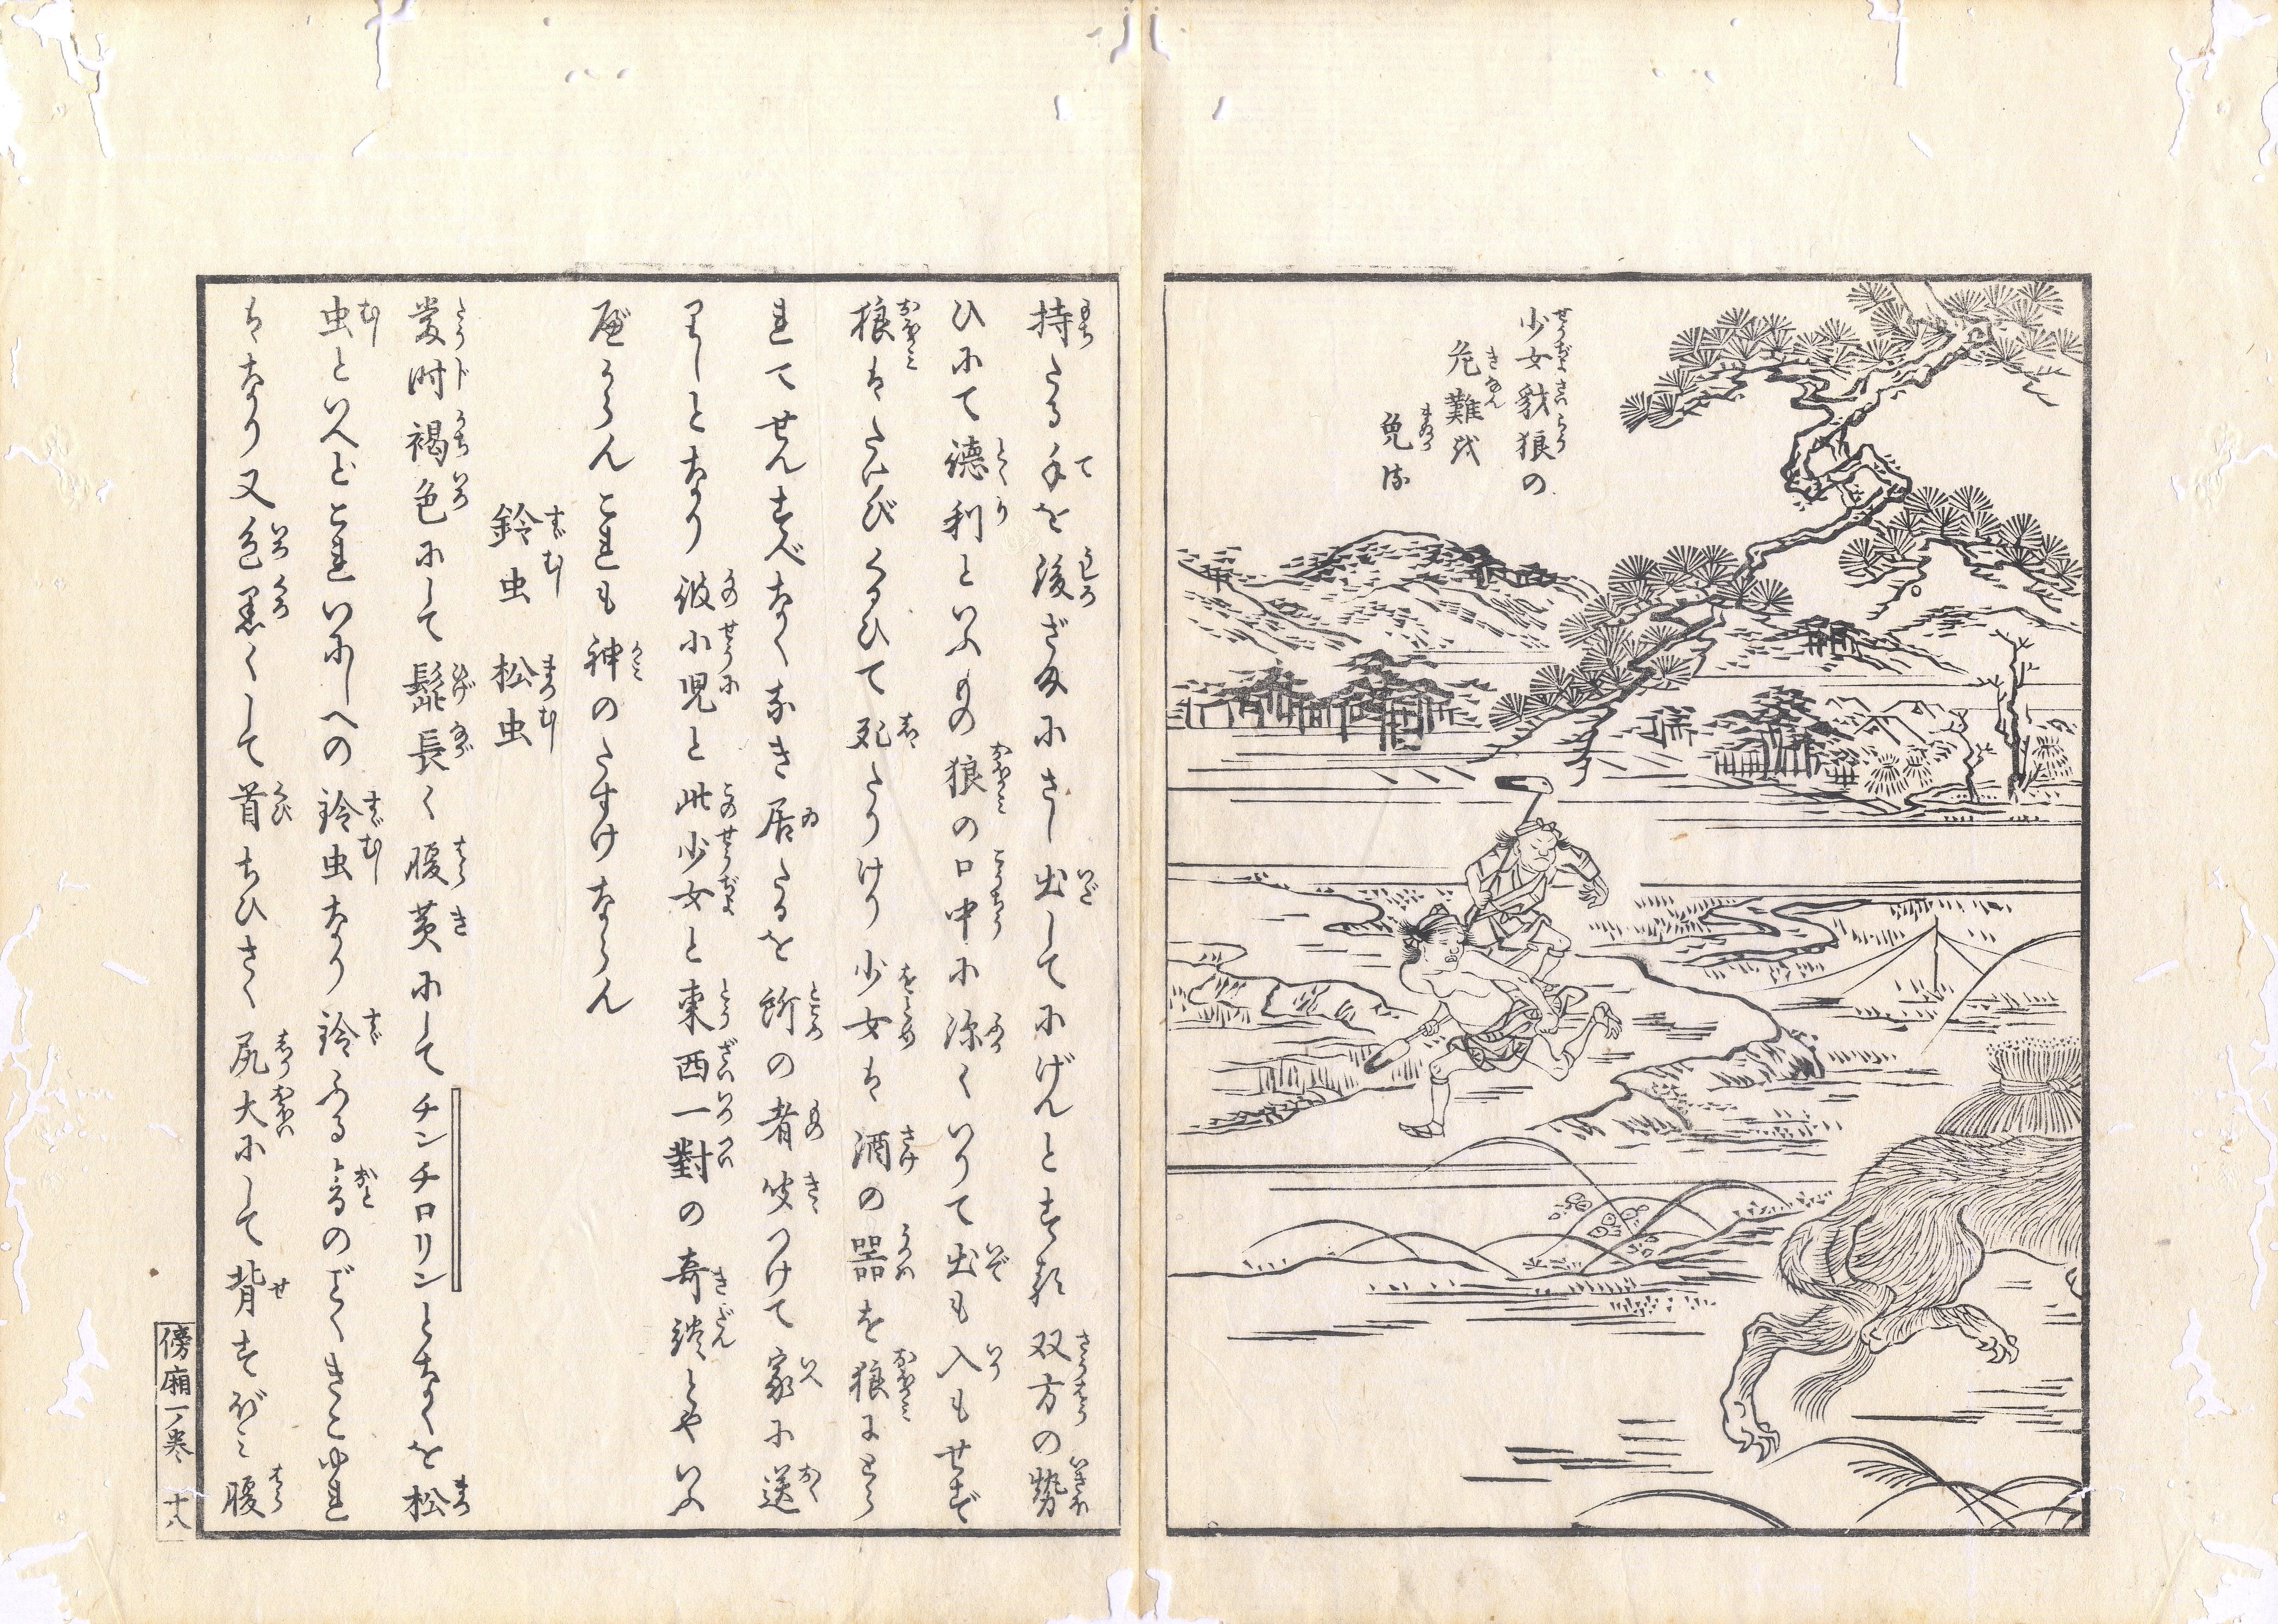 少女豺狼の
危難を
免る
持たる手を後ざまにさし出してにげんとする双方の勢
ひにて徳利といふもの狼の口中に深くいりて出も入もせず
狼はたけびくるひて死たりけり少女は酒の器を狼にとら
れてせんすべなくなき居たるを所の者笑つけて家に送
りしとなり彼小児と此少女と東西一對の奇談とやいふ
べからんこれも神のたすけならん
鈴虫　松虫
當時褐色にして髭長く腹黄にしてチンチロリンとなくを松
虫といへどこれいにしへの鈴虫なり鈴ふる音のごとくきこゆれ
はなり又色黒くして首ちひさく尻大にして背すぼみ腹
傍廂一ノ巻　十八